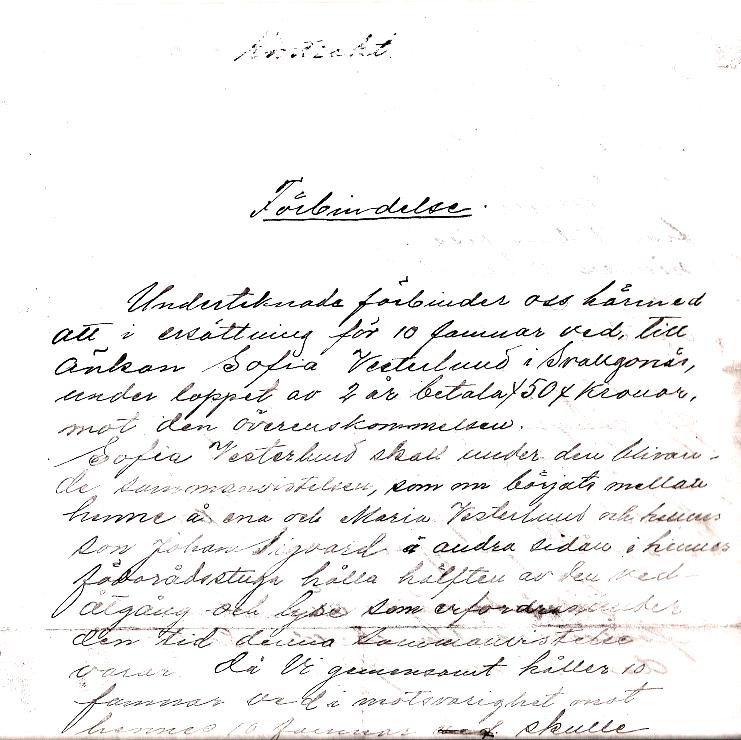 Kontrakt.
Förbindelse.
Underteknade förbinder oss härmed
att i ersättning för 10 famnar ved, till
änkan Sofia Vesterlund i Svallgonäs,
under loppet av 2 år betala 450 kronor,
mot den överenskommelsen.
Sofia Vesterlund skall under den blivan-
de sammanvistelsen, som nu börjats mellan
henne å ena och Maria Vesterlund och hennes
son Johan Sigvard å andra sidan i hennes
förorådsstuga hålla hälften av den ved-
åtgång och lyse som erfordras under
den tid denna sammanvistelse
varar. Då Vi gemensamt håller 10
famnar ved i motsvarighet mot
hennes 10 famnar skulle